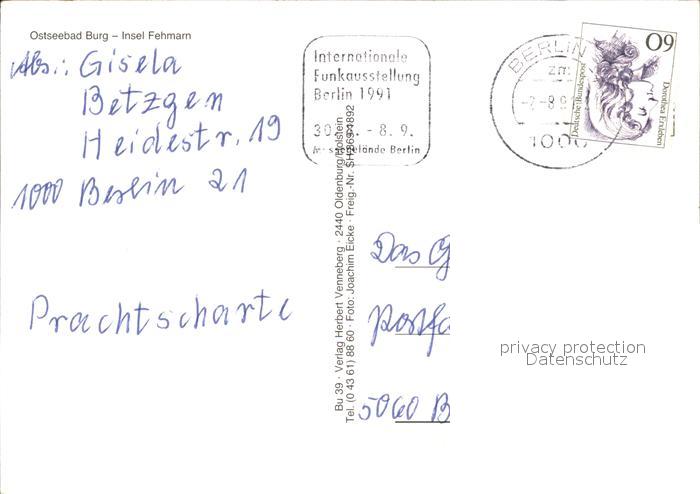 Ostseebad Burg – Insel Fehmarn
Abs.: Gisela
Betzgen
Heidestr. 19
1000 Berlin 21
Prachtscharte
Internationale
Funkausstellung
Berlin 1991
30.8. - 8.9.
Messegelände Berlin
BERLIN
1000
60
Deutsche Bundespost
Dorothea Erxleben
Bu 39 · Verlag Herbert Venneberg · 2440 Oldenburg/Holstein
Tel. (0 43 61) 88 60 · Foto: Joachim Eicke · Freig.-Nr. SH
Das G
Postfa
5060 B
privacy protection
Datenschutz